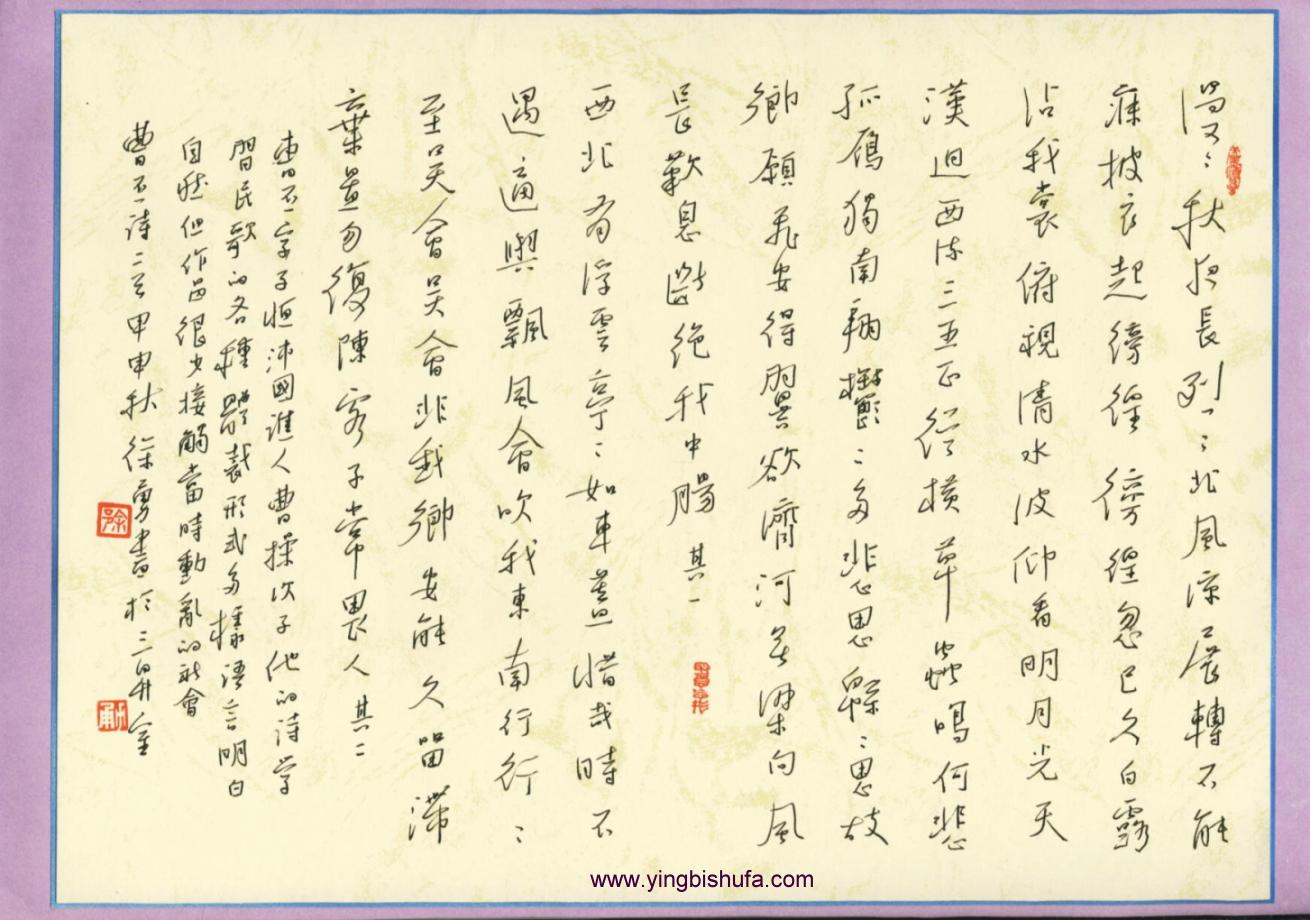 漫〻秋夜長列〻北風涼展轉不能
寐披衣起彷徨彷徨忽已久白露
沾我裳俯視清水波仰看明月光天
漢迴西流三五正從橫草蟲鳴何悲
孤鴈獨南翔欝〻多悲思緜〻思故
鄉願飛安得翼欲濟河無梁向風
長歎息斷絶我中腸 其一
西北有浮雲亭〻如車蓋惜哉時不
遇適與飄風會吹我東南行行〻
至吴會吴會非我鄉安能久留滯
棄置勿復陳客子常畏人 其二
曹丕字子恒沛國譙人曹操次子他的诗学
習民歌的各種體裁形式多樣语言明白
自然但作品很少接觸當時動亂的社會
曹丕诗二首甲申秋徐勇書於三昇室
徐
www.yingbishufa.com